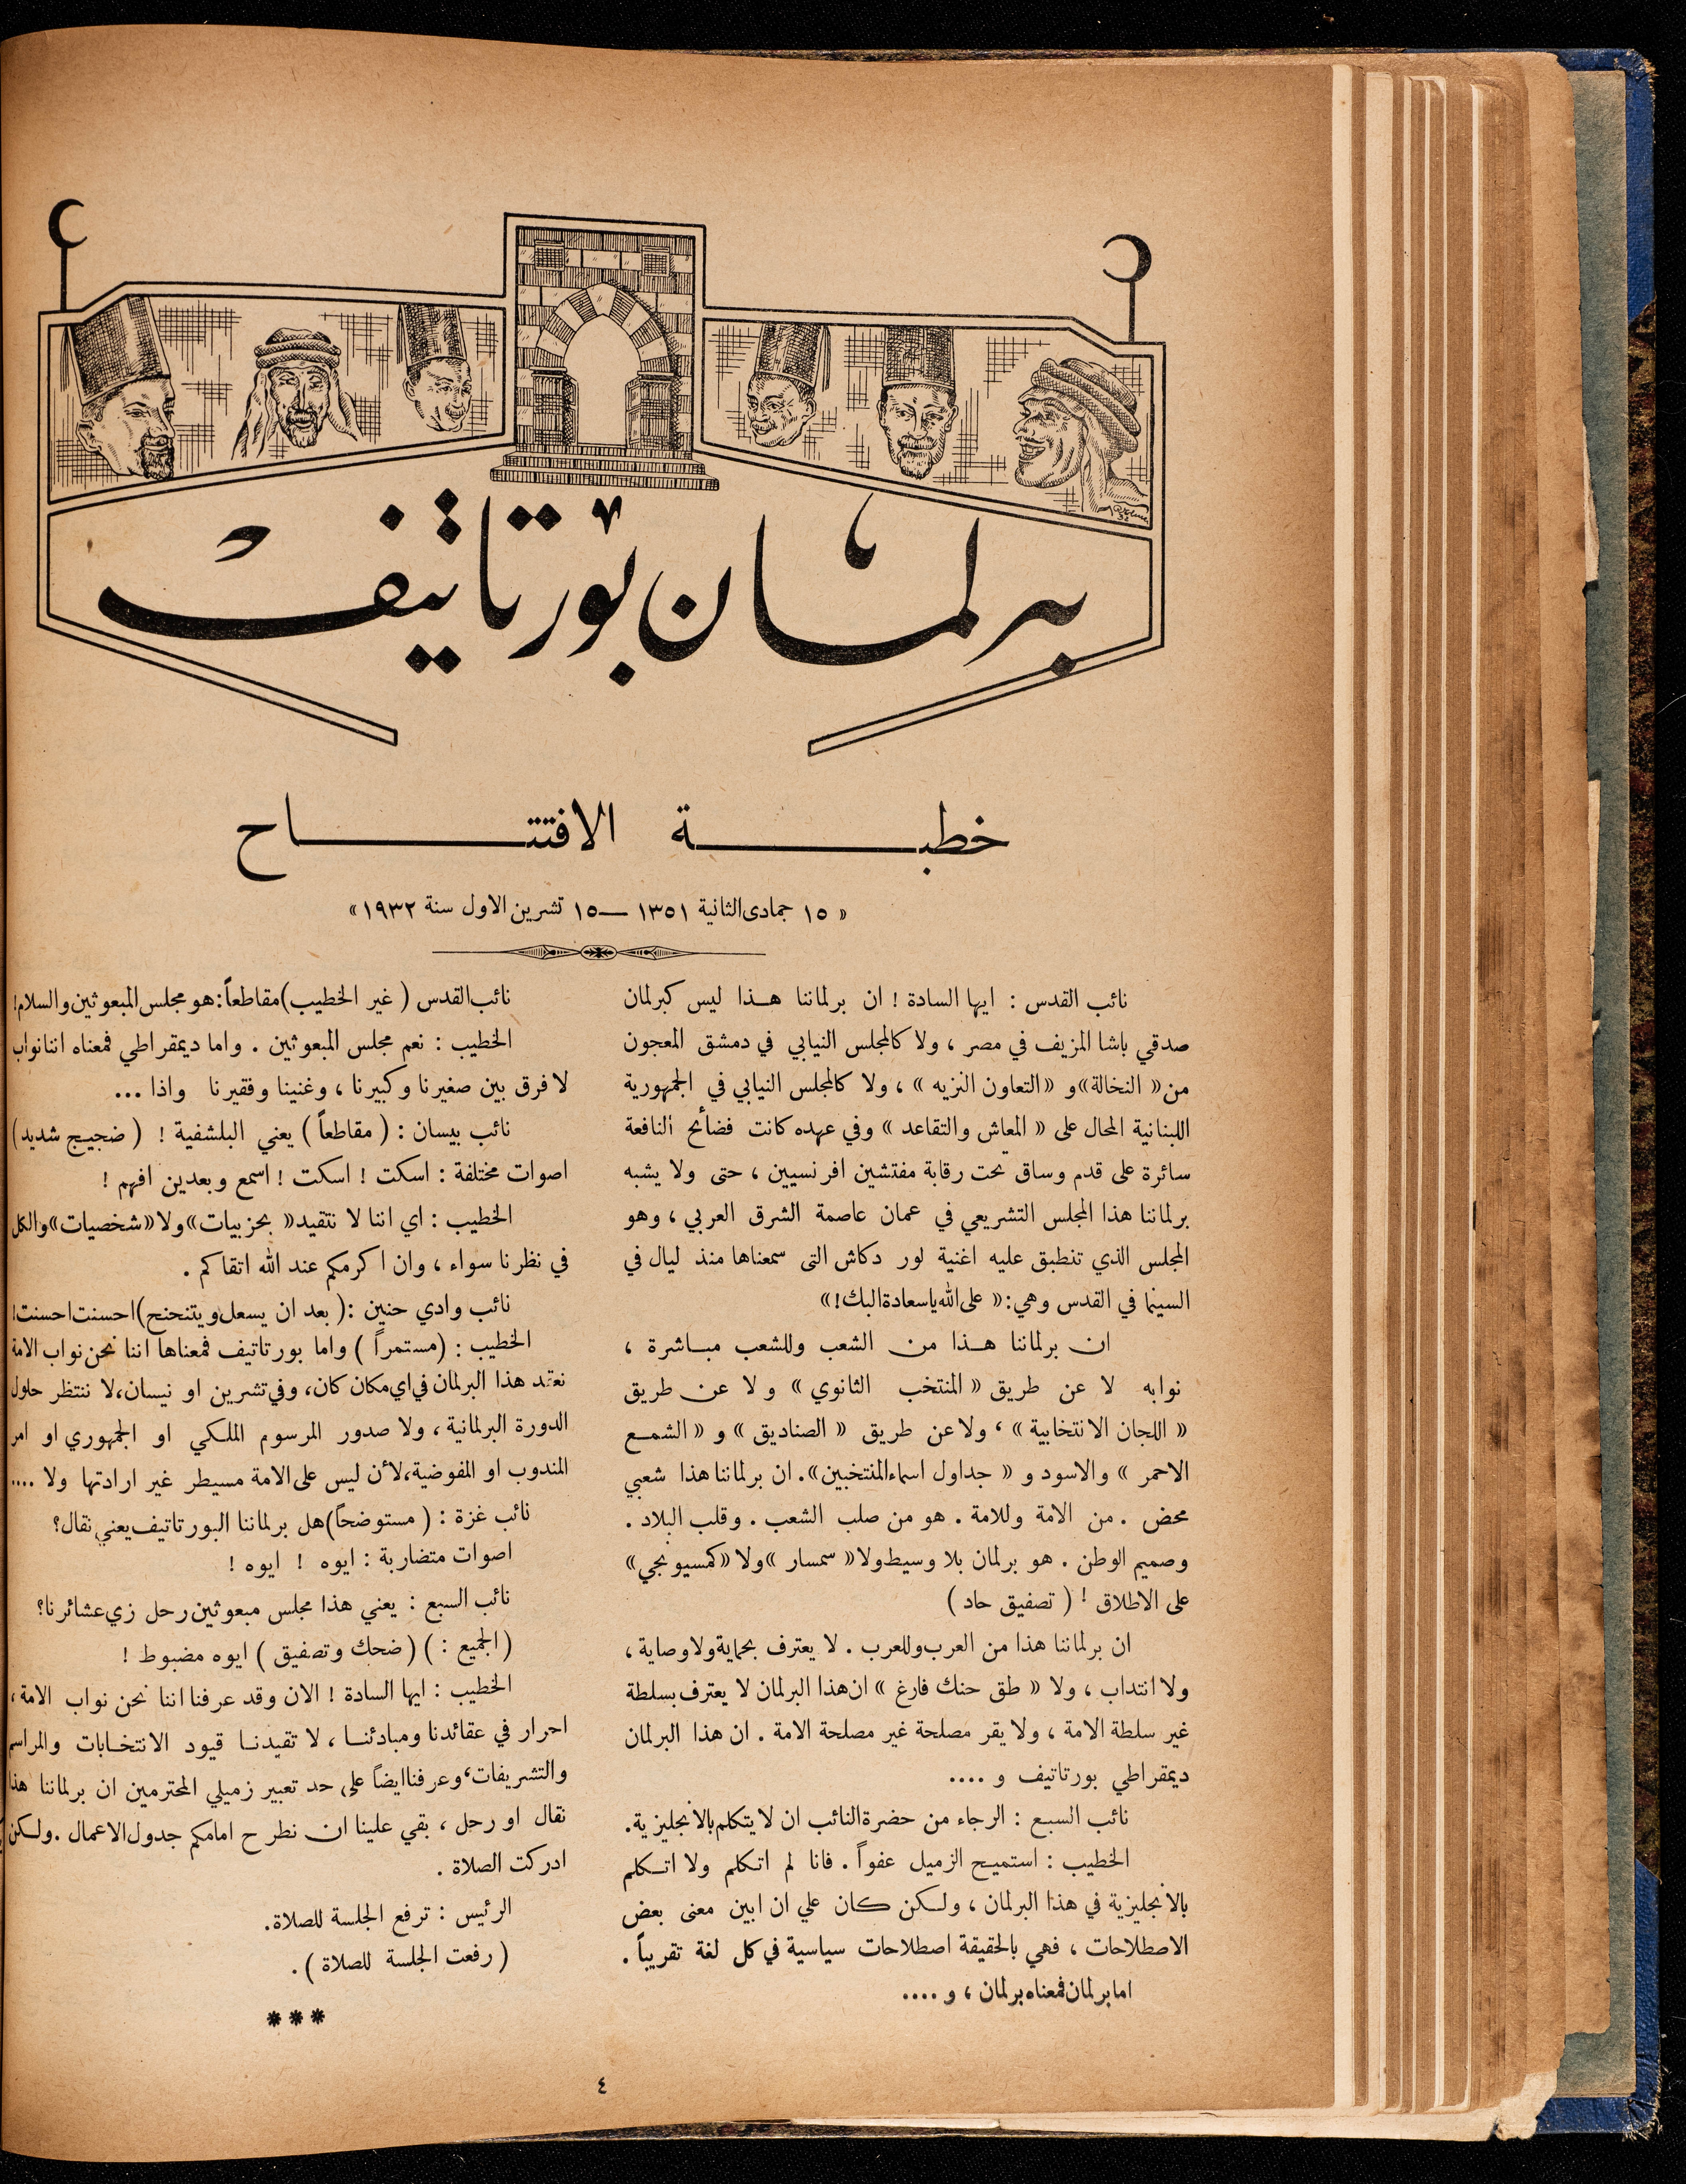 برلمان بورتاتيف
خطبة الافتتاح
« ١٥ جمادى الثانية ١٣٥١ — ١٥ تشرين الاول سنة ١٩٣٢ »
نائب القدس : ايها السادة ! ان برلماننا هذا ليس كبرلمان
صدقي باشا المزيف في مصر ، ولا كالمجلس النيابي في دمشق المعجون
من « النخالة » و « التعاون النزيه » ، ولا كالمجلس النيابي في الجمهورية
اللبنانية المحال على « المعاش والتقاعد » وفي عهده كانت فضائح النافعة
سائرة على قدم وساق تحت رقابة مفتشين افرنسيين ، حتى ولا يشبه
برلماننا هذا المجلس التشريعي في عمان عاصمة الشرق العربي ، وهو
المجلس الذي تنطبق عليه اغنية لور دكاش التى سمعناها منذ ليال في
السينما في القدس وهي : « على الله ياسعادة البك ! »
ان برلماننا هذا من الشعب وللشعب مباشرة ،
نوابه لا عن طريق « المنتخب الثانوي » ولا عن طريق
« اللجان الانتخابية » ، ولا عن طريق « الصناديق » و « الشمع
الاحمر » والاسود و « جداول اسماء المنتخبين » . ان برلماننا هذا شعبي
محض . من الامة وللامة . هو من صلب الشعب . وقلب البلاد .
وصميم الوطن . هو برلمان بلا وسيط ولا « سمسار » ولا « كمسيونجي »
على الاطلاق ! ( تصفيق حاد )
ان برلماننا هذا من العرب وللعرب . لا يعترف بحماية ولا وصاية ،
ولا انتداب ، ولا « طق حنك فارغ » ان هذا البرلمان لا يعترف بسلطة
غير سلطة الامة ، ولا يقر مصلحة غير مصلحة الامة . ان هذا البرلمان
ديمقراطي بورتاتيف و ....
نائب السبع : الرجاء من حضرة النائب ان لا يتكلم بالانجليزية .
الخطيب : استميح الزميل عفواً . فانا لم اتكلم ولا اتكلم
بالانجليزية في هذا البرلمان ، ولكن كان علي ان ابين معنى بعض
الاصطلاحات ، فهي بالحقيقة اصطلاحات سياسية في كل لغة تقريباً .
اما برلمان فمعناه برلمان ، و ....
نائب القدس ( غير الخطيب ) مقاطعاً : هو مجلس المبعوثين والسلام !
الخطيب : نعم مجلس المبعوثين . واما ديمقراطي فمعناه اننا نواب
لا فرق بين صغيرنا وكبيرنا ، وغنينا وفقيرنا واذا ...
نائب بيسان : ( مقاطعاً ) يعني البلشفية ! ( ضجيج شديد )
اصوات مختلفة : اسكت ! اسكت ! اسمع وبعدين افهم !
الخطيب : اي اننا لا نتقيد « بحزبيات » ولا « شخصيات » والكل
في نظرنا سواء ، وان اكرمكم عند الله اتقاكم .
نائب وادي حنين : ( بعد ان يسعل ويتنحنح ) احسنت احسنت !
الخطيب : ( مستمراً ) واما بورتاتيف فمعناها اننا نحن نواب الامة
نعقد هذا البرلمان في اي مكان كان ، وفي تشرين او نيسان ، لا ننتظر حلول
الدورة البرلمانية ، ولا صدور المرسوم الملكي او الجمهوري او امر
المندوب او المفوضية ، لأن ليس على الامة مسيطر غير ارادتها ولا ....
نائب غزة : ( مستوضحاً ) هل برلماننا البورتاتيف يعني نقال ؟
اصوات متضاربة : ايوه ! ايوه !
نائب السبع : يعني هذا مجلس مبعوثين رحل زي عشائرنا ؟
( الجميع : ) ( ضحك وتصفيق ) ايوه مضبوط !
الخطيب : ايها السادة ! الان وقد عرفنا اننا نحن نواب الامة ،
احرار في عقائدنا ومبادئنا ، لا تقيدنا قيود الانتخابات والمراسم
والتشريفات ، وعرفنا ايضاً على حد تعبير زميلي المحترمين ان برلماننا هذا
نقال او رحل ، بقي علينا ان نطرح امامكم جدول الاعمال . ولكن
ادركت الصلاة .
الرئيس : ترفع الجلسة للصلاة .
( رفعت الجلسة للصلاة ) .
***
٤